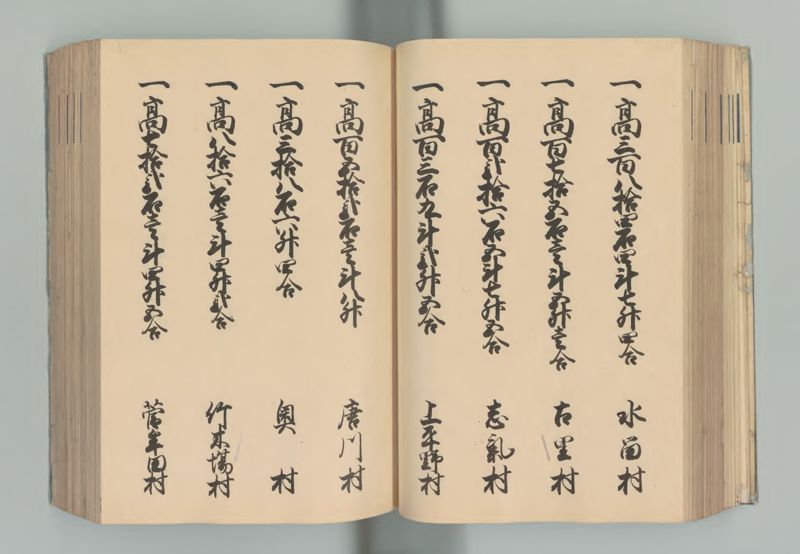 一高三百八拾四石四斗七升四合 水留村
一高百七拾五石壱斗五升壱合 古里村
一高百弐拾六石五斗七升五合 志氣村
一高百三石九斗弐升五合 上平野村
一高百五拾弐石壱斗八升 唐川村
一高三拾八石六升四合 奥村
一高八拾六石壱斗四升弐合 竹木場村
一高七拾弐石壱斗四升五合 菅牟田村